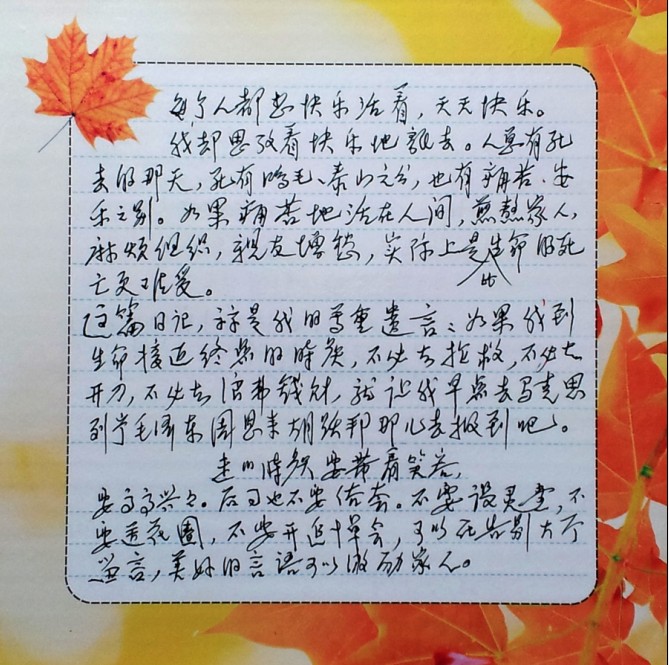 每个人都想快乐活着，天天快乐。
我却思考着快乐地离去。人总有死
去的那天，死有鸿毛、泰山之分，也有痛苦、安
乐之别。如果痛苦地活在人间，煎熬家人，
麻烦组织，亲友增愁，实际上是比生命的死
亡更难受。
这篇日记，就是我的尊重遗言：如果我到
生命接近终点的时候，不必去抢救，不必去
开刀，不必去浪费钱财，就让我早点去马克思
列宁毛泽东周恩来胡耀邦那儿去报到吧。
走的时候要带着笑容，
要高高兴兴。后事也不要传套。不要设灵堂，不
要送花圈，不要开追悼会，可以在告别大厅
留言，美好的言语可以激励家人。